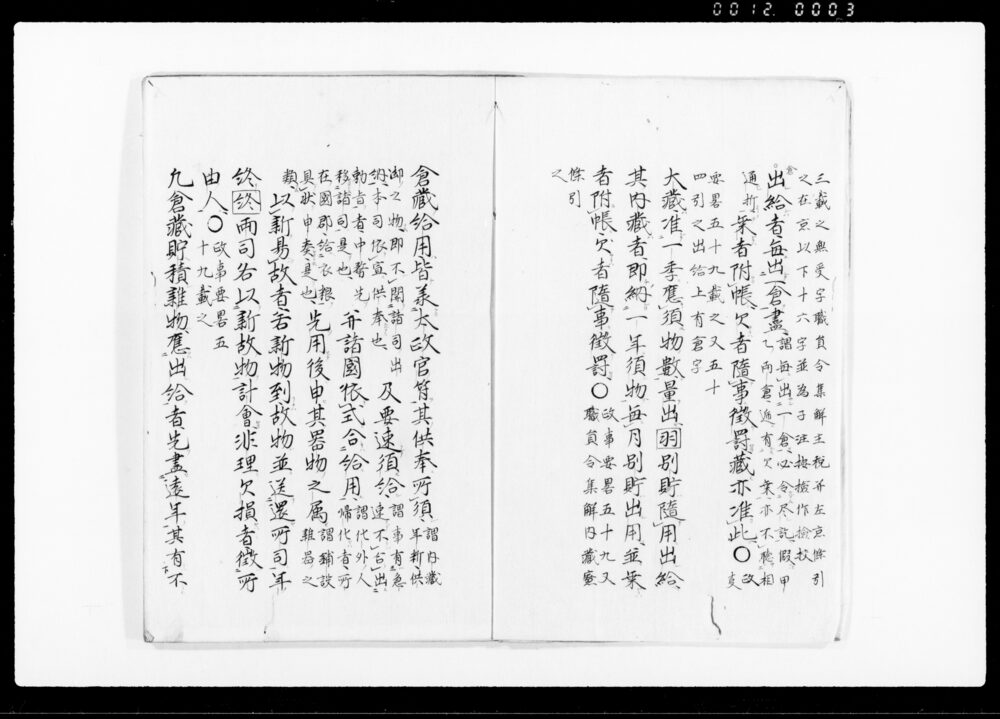 0012. 0003
三載之無受字職員令集解主税并左京條引
之在京以下十六字並為子注按檢作撿挍
倉
出給者每出一倉盡謂每出一倉必令尽訖假甲
乙兩倉遞有欠業亦不聴相
通折業者附帳欠者隨事徴罰藏亦准此〇政
事
要畧五十九載之又五十
四引之出給上有倉字
大藏准一季應須物數量出羽別貯隨用出給
其内藏者即納一年須物每月别貯出用並業
者附帳欠者隨事徴罰〇政事要畧五十九又
職負令集解内藏寮
條引
之
倉藏給用皆羕太政官符其供奉所須謂内藏
年新供
御之物即不関諸司出
納本司依宣供奉也及要速須給謂事有急
速不合出
勅旨者中務先
移諸司是也并諸國依式合給用謂化外人
帰化者所
在國郡給衣粮
具狀申奏是也先用後申其器物之属謂鋪設
雜器之
類以新易故者若新物到故物並送還所司年
終終兩司各以新故物計會非理欠損者徴所
由人〇政事要畧五
十九載之
凢倉藏貯積雜物應出給者先盡遠年其有不